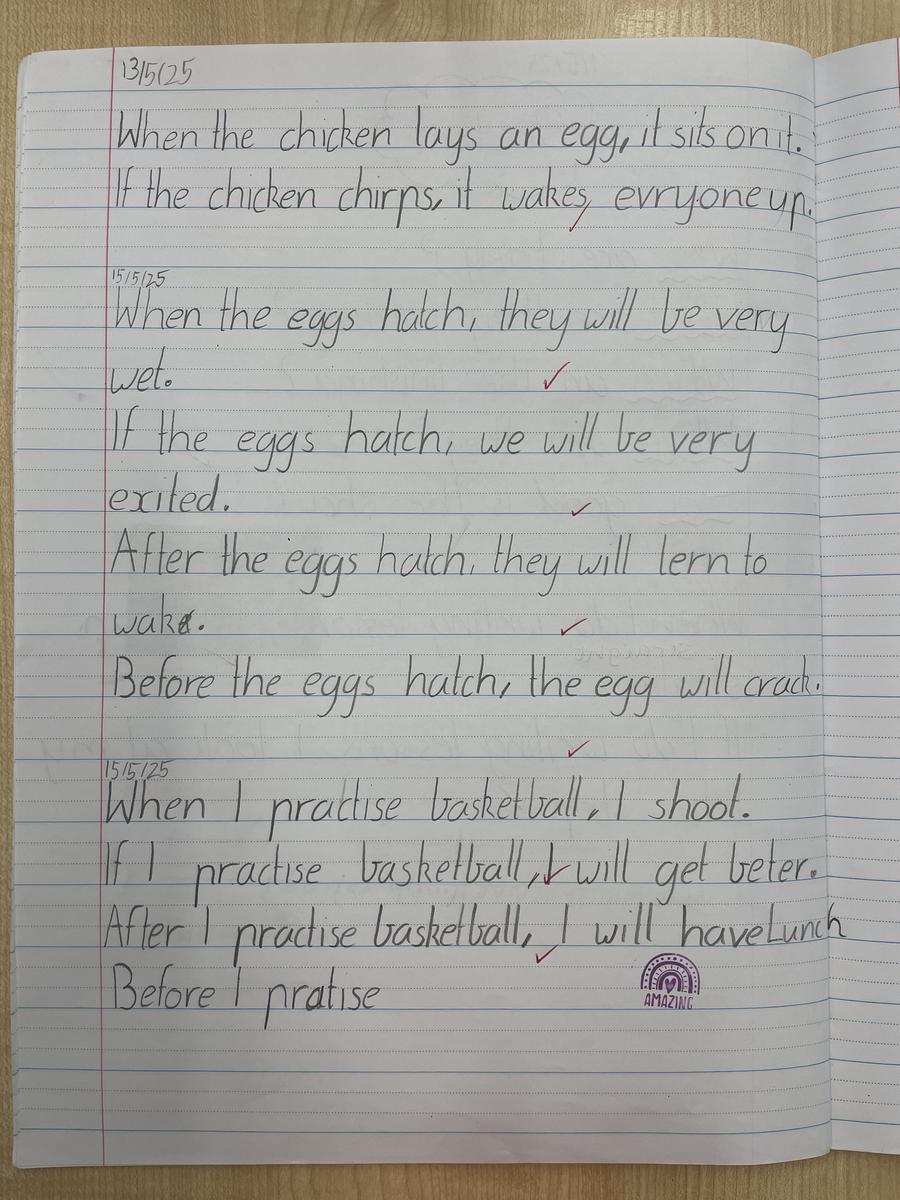 13/5/25
When the chicken lays an egg, it sits on it.
If the chicken chirps, it wakes, evryone up.
15/5/25
When the eggs hatch, they will be very
wet.
If the eggs hatch, we will be very
exited.
After the eggs hatch, they will lern to
wake.
Before the eggs hatch, the egg will crack.
15/5/25
When I practise basketball, I shoot.
If I practise basketball, I will get beter.
After I practise basketball, I will have Lunch
Before I pratise
AMAZING